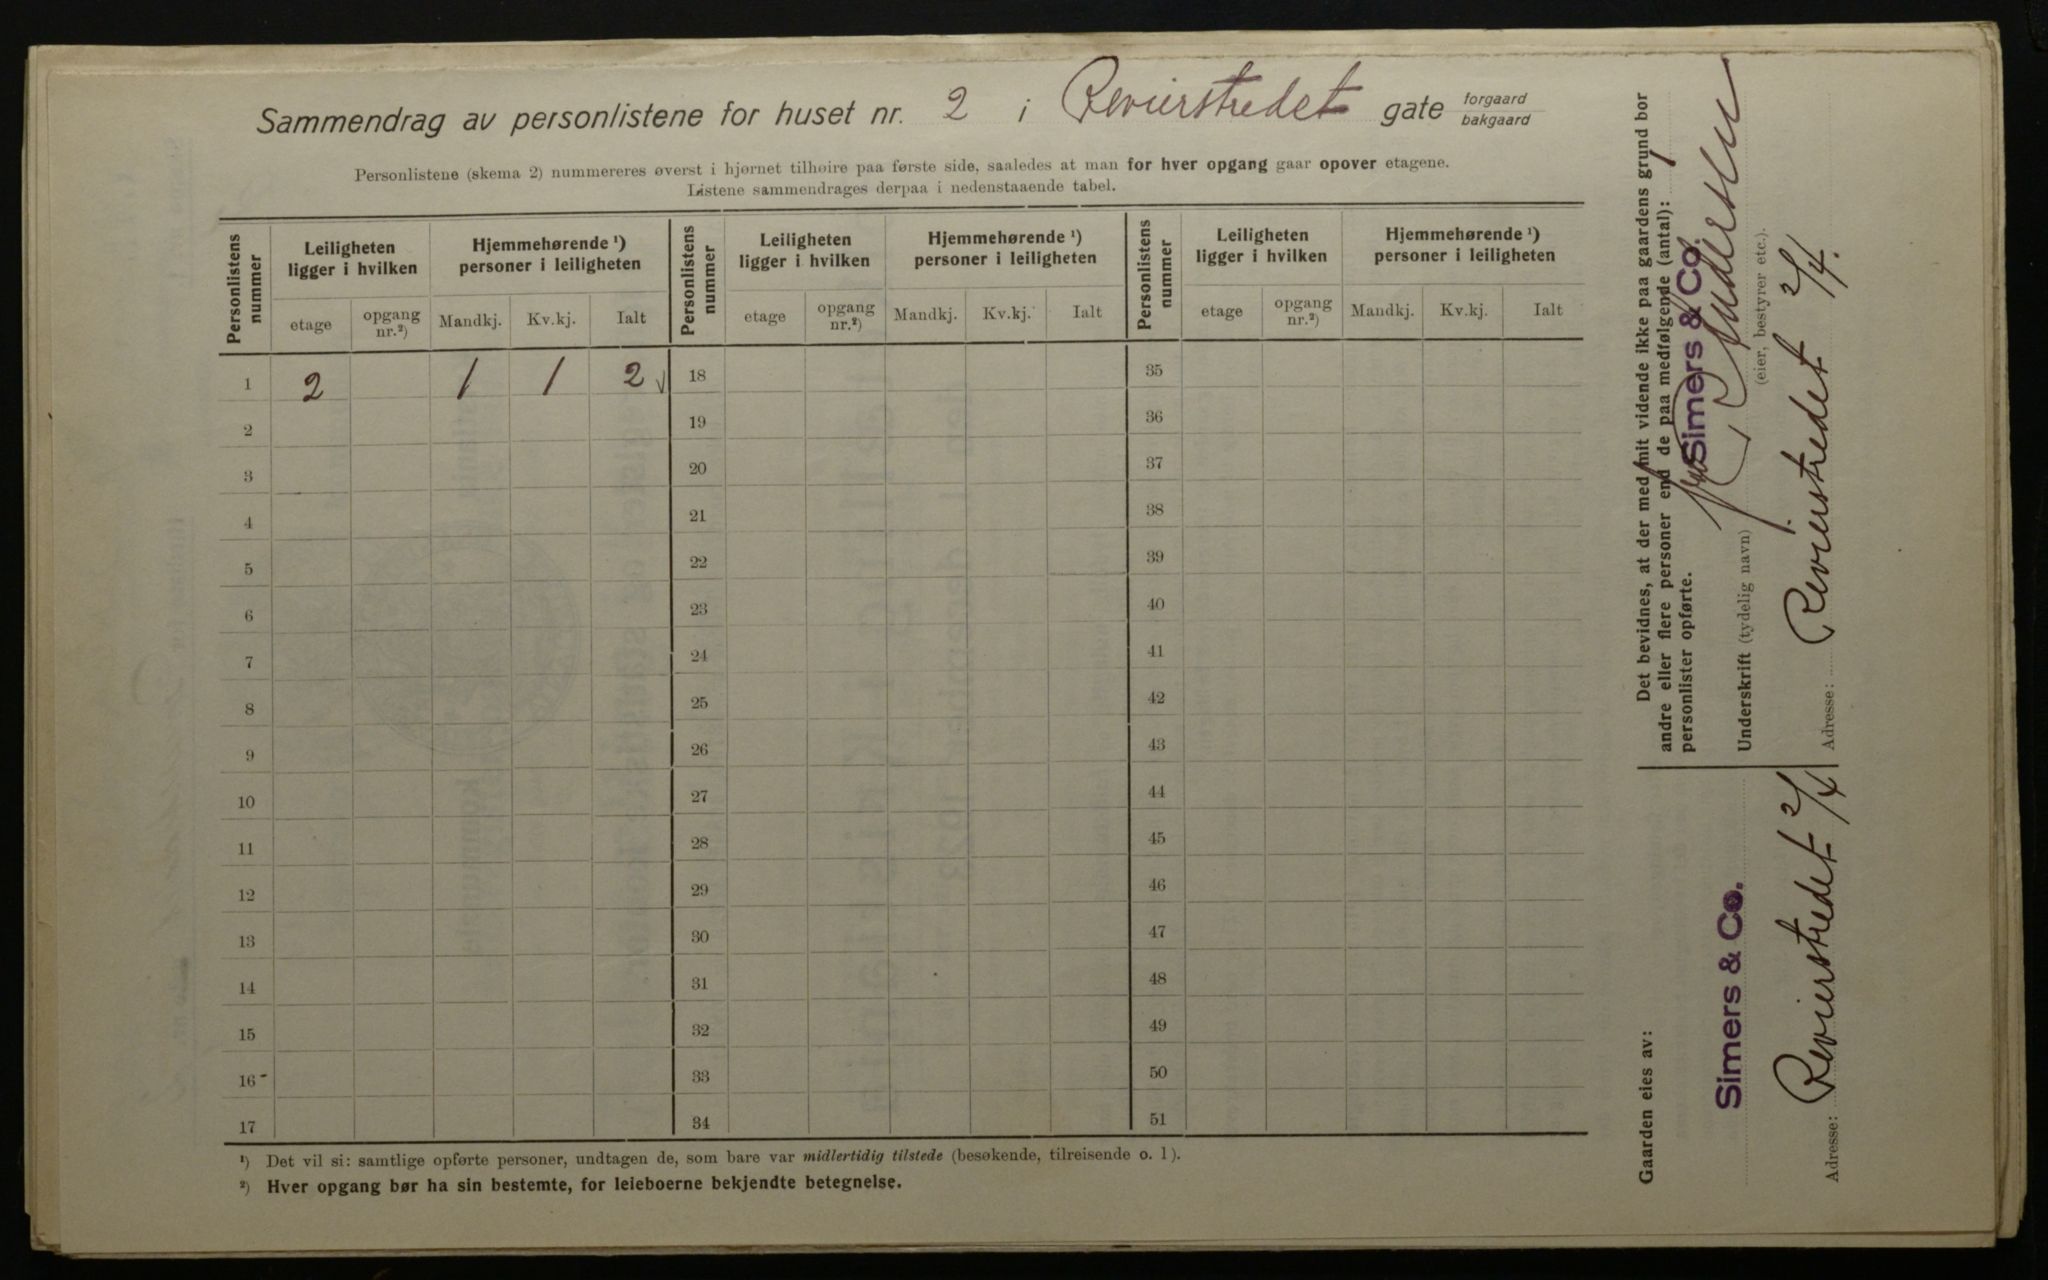 Sammendrag av personlistene for huset nr. 2 i Revierstredet gate forgaard bakgaard
Personlistene (skema 2) nummereres øverst i hjørnet tilhøire paa første side, saaledes at man for hver opgang gaar opover etagene.
Listene sammendrages derpaa i nedenstaaende tabel.
Personlistens nummer | Leiligheten ligger i hvilken | Hjemmehørende ¹) personer i leiligheten | Personlistens nummer | Leiligheten ligger i hvilken | Hjemmehørende ¹) personer i leiligheten | Personlistens nummer | Leiligheten ligger i hvilken | Hjemmehørende ¹) personer i leiligheten
etage | opgang nr.²) | Mandkj. | Kv.kj. | Ialt | etage | opgang nr.²) | Mandkj. | Kv.kj. | Ialt | etage | opgang nr.²) | Mandkj. | Kv.kj. | Ialt
1 | 2 | 1 | 1 | 2 √ | 18 | 35
2 | 19 | 36
3 | 20 | 37
4 | 21 | 38
5 | 22 | 39
6 | 23 | 40
7 | 24 | 41
8 | 25 | 42
9 | 26 | 43
10 | 27 | 44
11 | 28 | 45
12 | 29 | 46
13 | 30 | 47
14 | 31 | 48
15 | 32 | 49
16 | 33 | 50
17 | 34 | 51
¹) Det vil si: samtlige opførte personer, undtagen de, som bare var midlertidig tilstede (besøkende, tilreisende o. l).
²) Hver opgang bør ha sin bestemte, for leieboerne bekjendte betegnelse.
Det bevidnes, at der med mit vidende ikke paa gaardens grund bor
andre eller flere personer end de paa medfølgende (antal): 1
personlister opførte.
Simers & Co.
Underskrift (tydelig navn)
(eier, bestyrer etc.).
Adresse: Revierstredet 2/4.
Gaarden eies av:
Simers & Co.
Adresse: Revierstredet 2/4